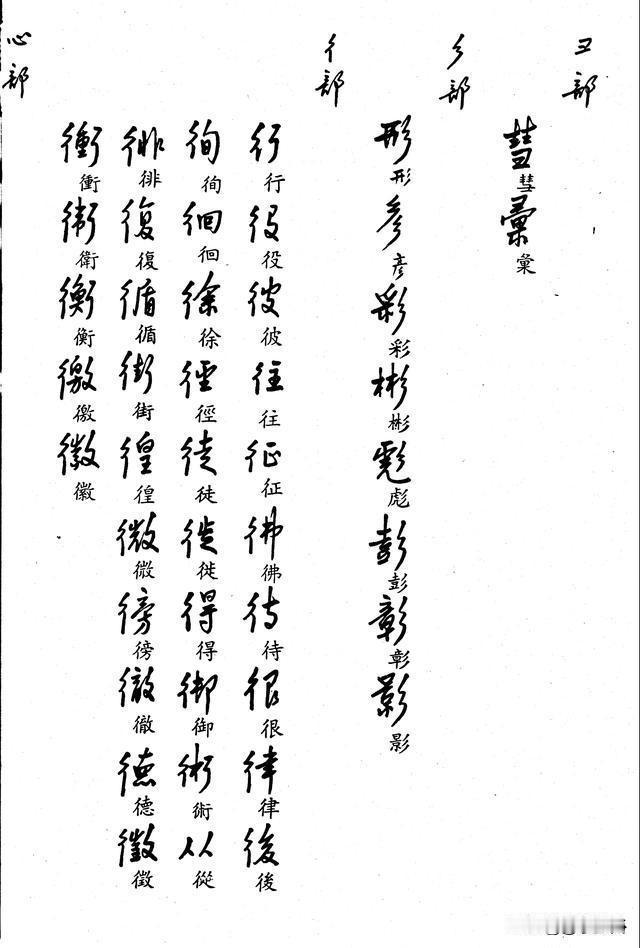 彐部
彗彗彙彙
彡部
形形彥彥彩彩彬彬彪彪彭彭彰彰影影
彳部
行行役役彼彼往往征征彿彿待待很很律律後後
徇徇徊徊徐徐徑徑徒徒徙徙得得御御術術从從
徘徘復復循循街街徨徨微微徬徬徹徹德德徵徵
衝衝衛衛衡衡徼徼徽徽
心部